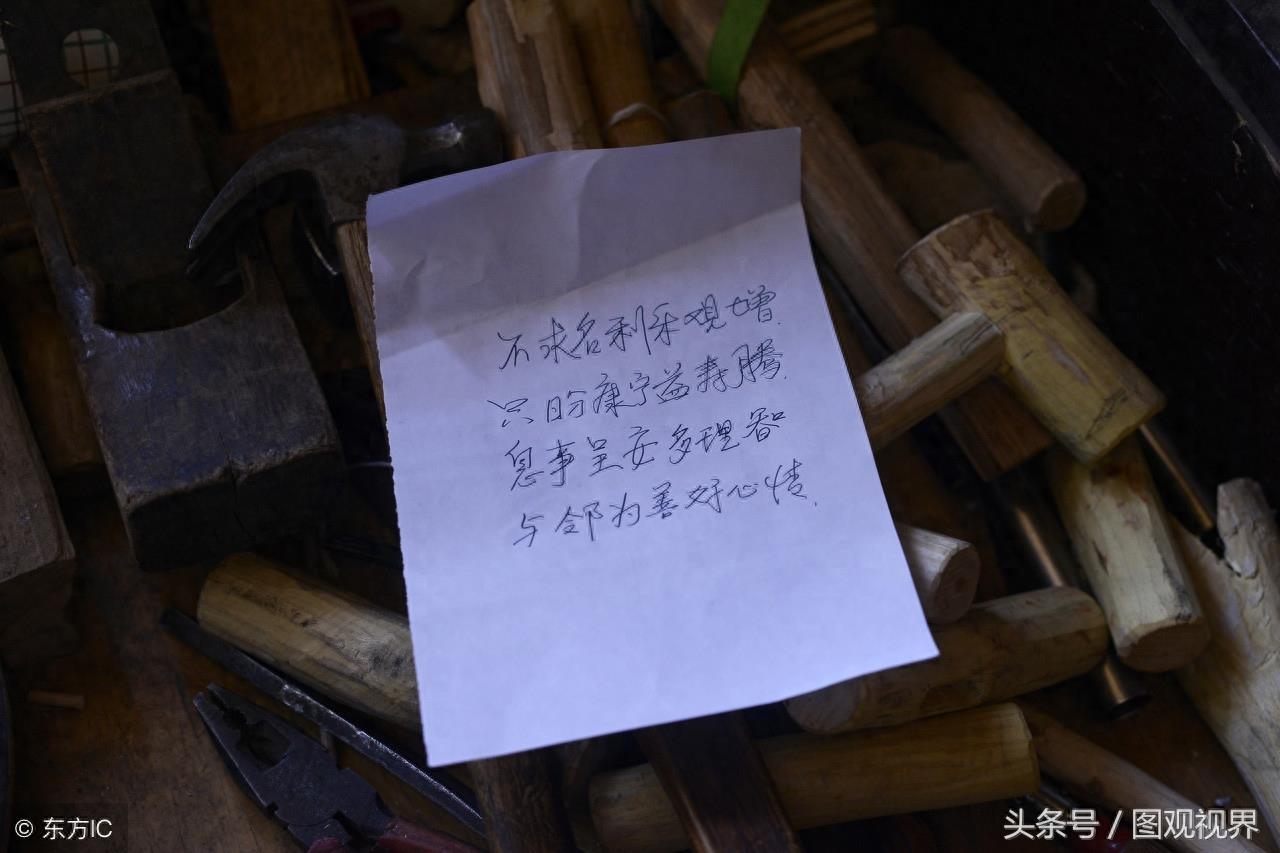 不求名利乐观增
只盼康宁益寿腾
息事呈安多理智
与邻为善好心情.
© 东方IC
头条号 / 图观视界